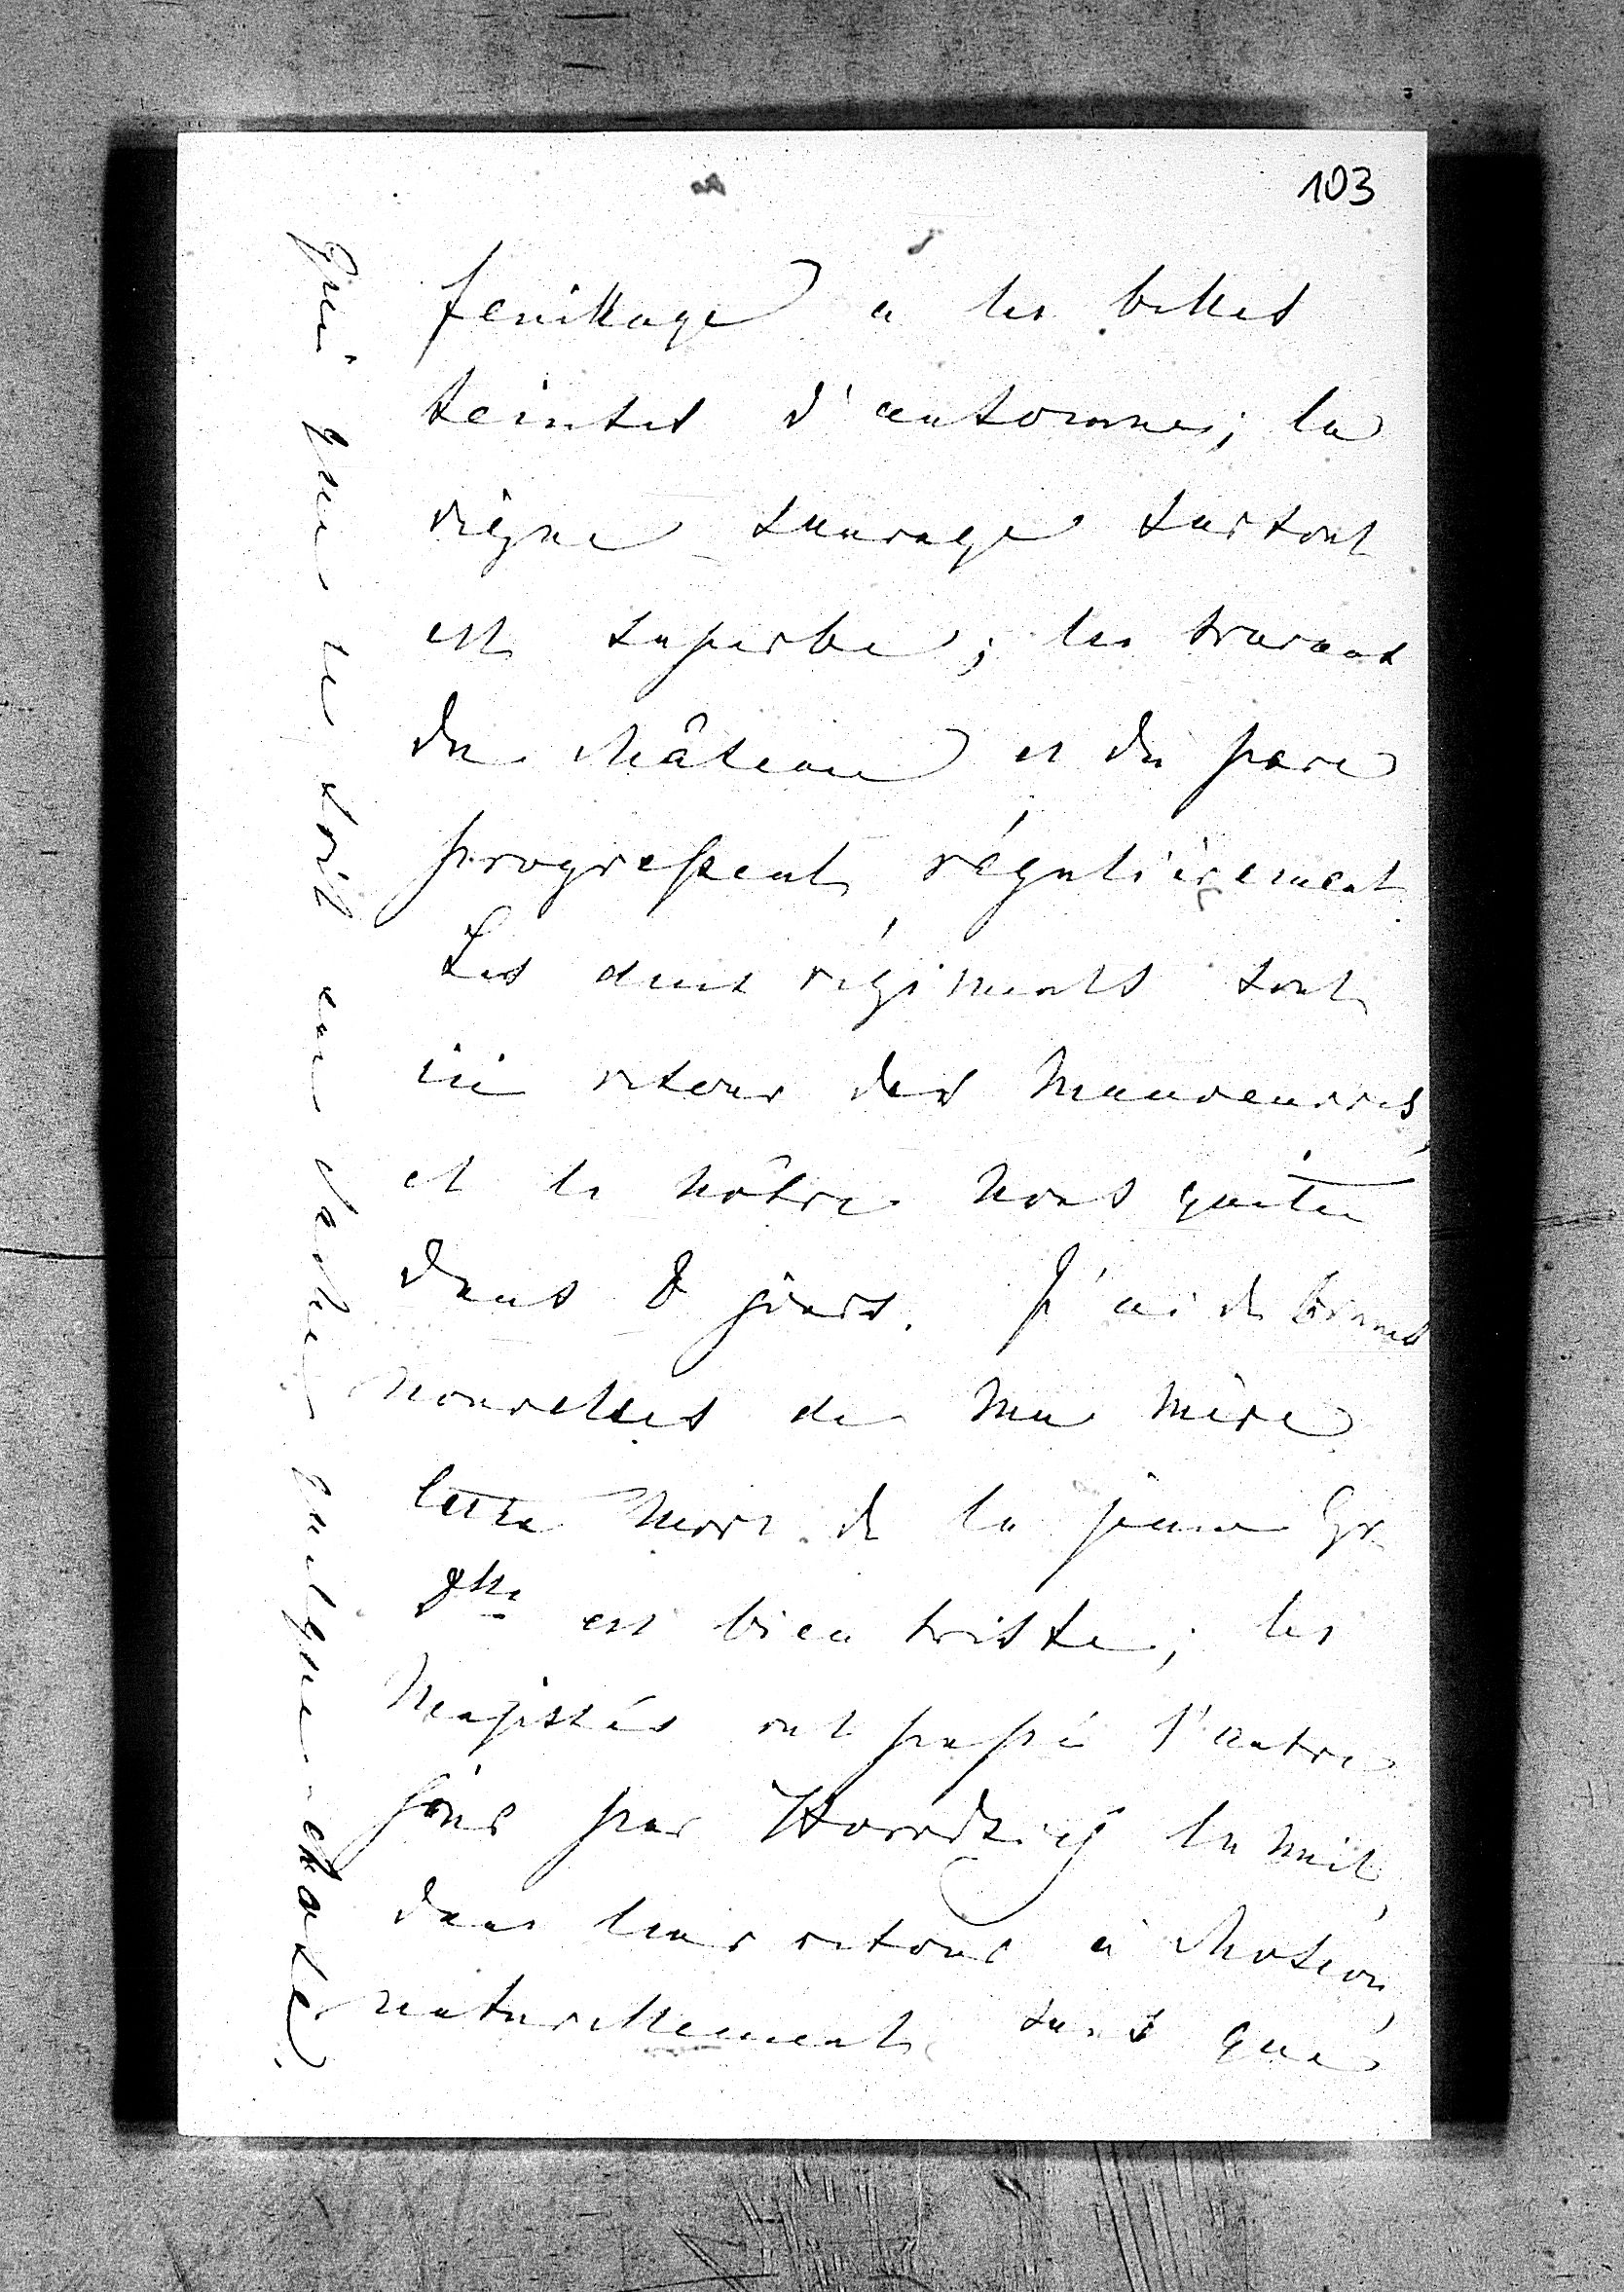 103
feuillage a les belles
teintes d'automne; la
vigne sauvage surtout
est superbe; les travaux
du château et du parc
progressent régulièrement
Les deux régiments sont
ici retour des manoeuvres,
et le nôtre nous quitte
dans 8 jours. J'ai de bonnes
nouvelles de ma mère
cette mort de la jeune Gr
Dsse est bien triste; les
Majestés ont passé l'autre
jour par Horodziej la nuit,
dans leur retour à
naturellement sans que
qui que ce soit en sache quelque chose.